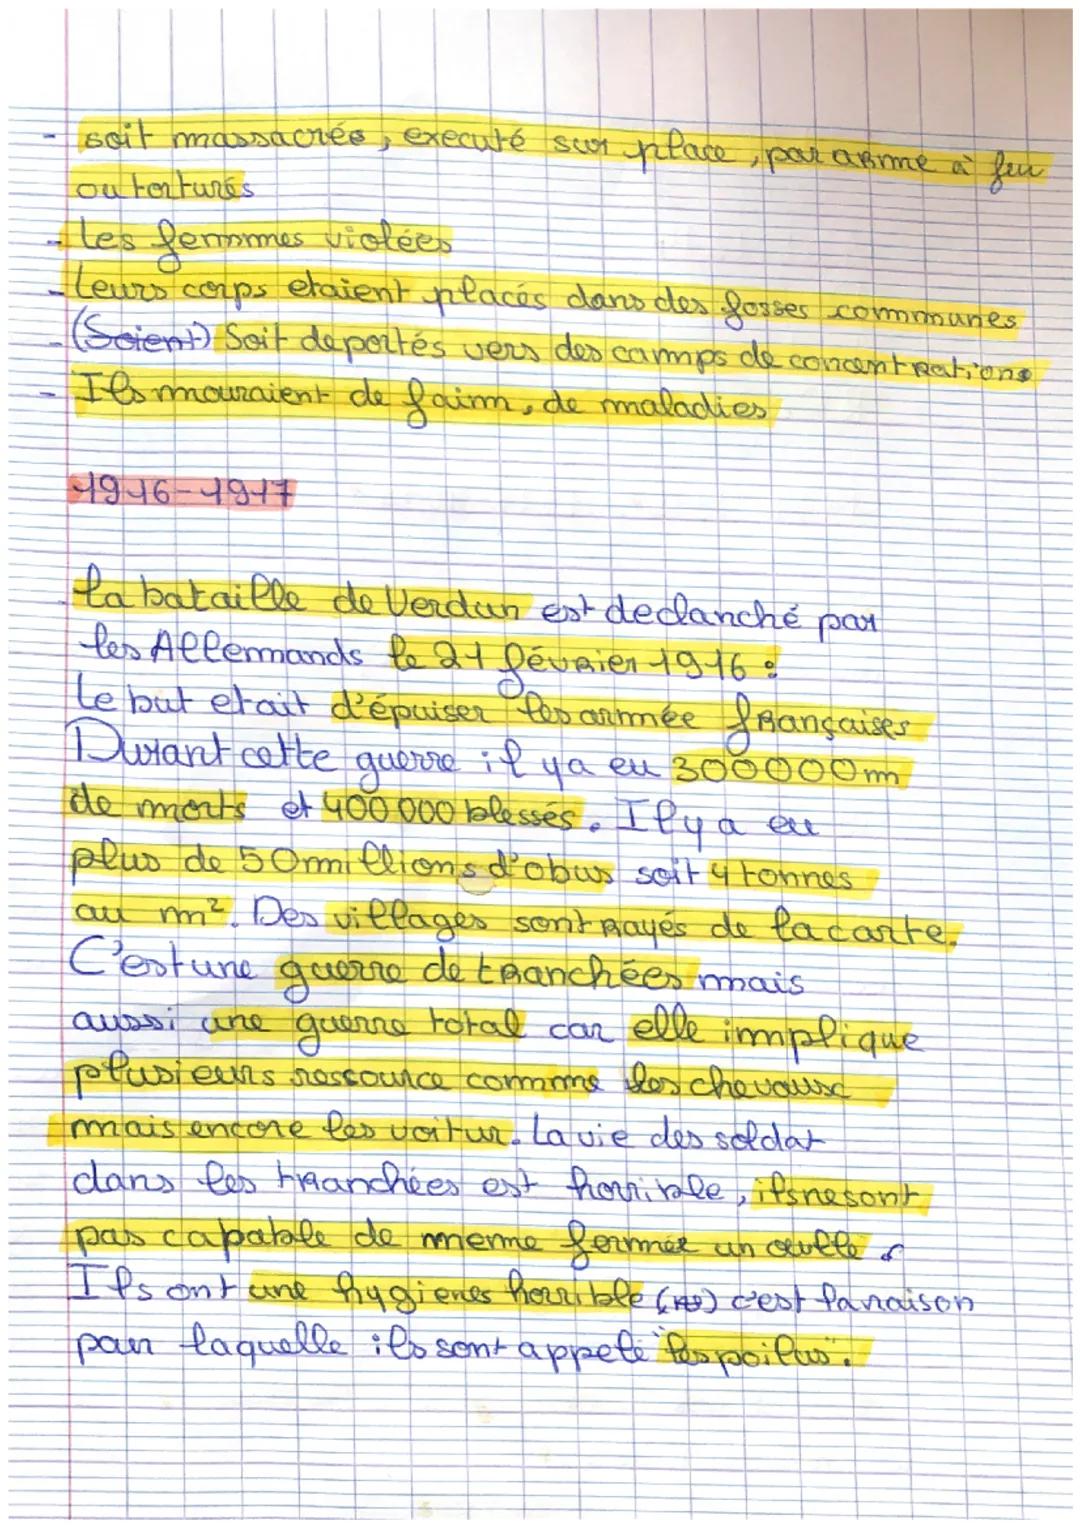 - soit massacrés, executé sur place, par arme à feu
ou torturés
- Les femmes violées
- Leurs corps etaient placés dans des fosses communes
- (Soient) Soit deportés vers des camps de concentrations
- Ils mouraient de faim, de maladies
1916-1917
la bataille de Verdun est declanché par
les Allemands le 21 février 1916 :
Le but etait d'épuiser les armée françaises
Durant cette guerre il y a eu 300000 m
de morts et 400 000 blessés. Il y a eu
plus de 50 millions d'obus soit 4 tonnes
au m². Des villages sont rayés de la carte.
C'est une guerre de tranchées mais
aussi une guerre total car elle implique
plusieurs ressource comme les chevaux
mais encore les voitur. La vie des soldat
dans les tranchées est horrible, ils ne sont
pas capable de meme fermer un œulle.
Ils ont une hygienes horrible c'est la raison
par laquelle ils sont appelé "les poilus".